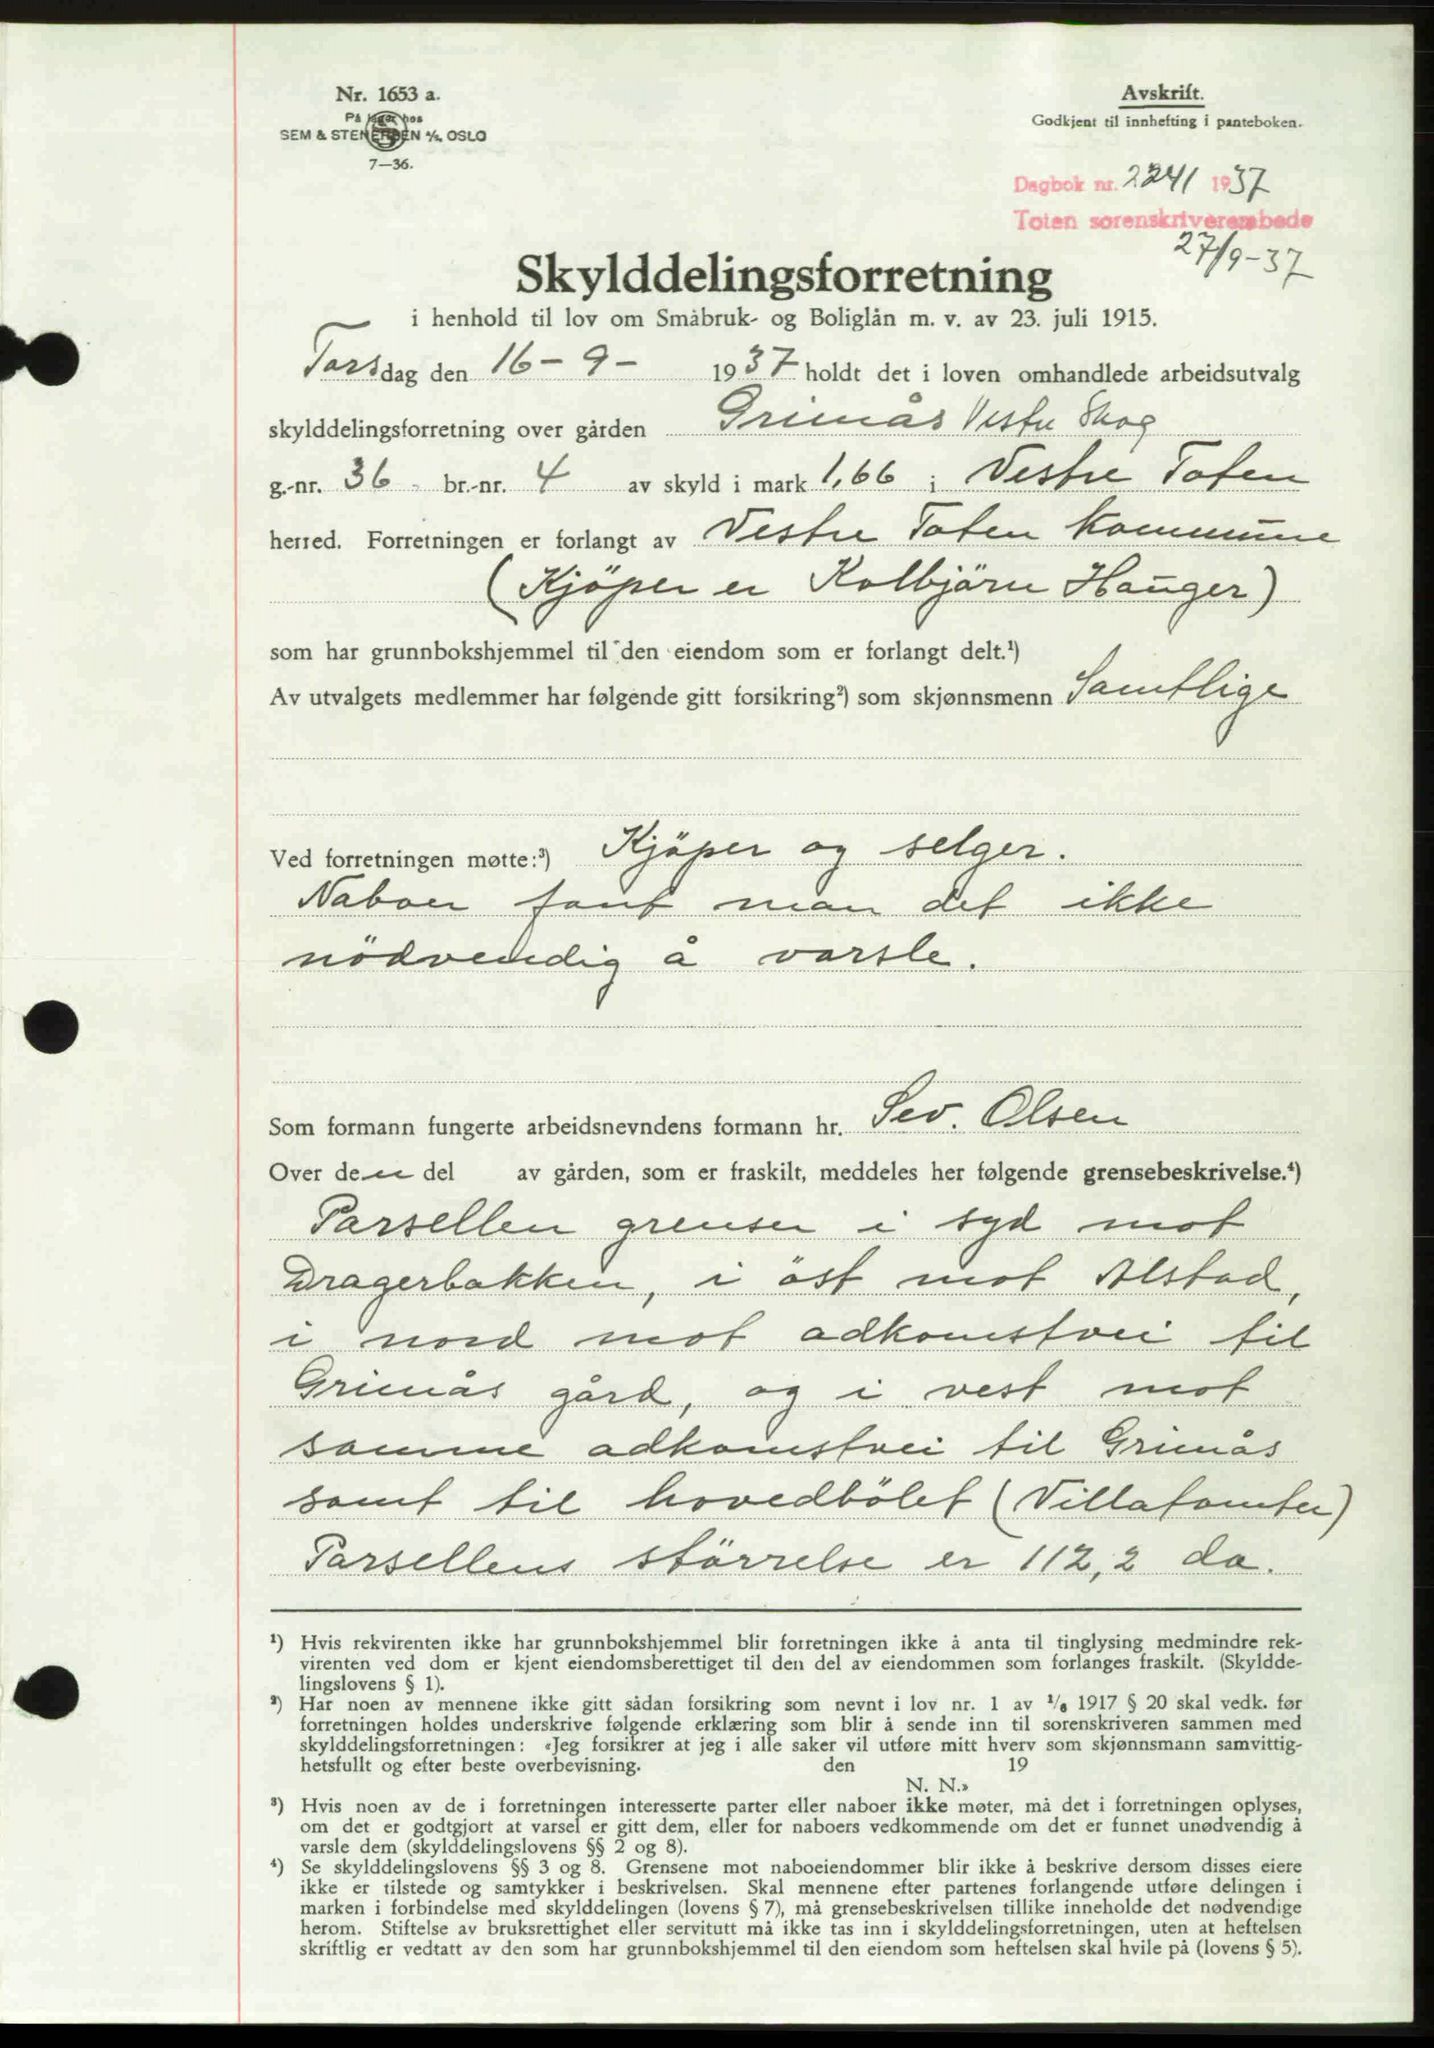 Nr. 1653 a.
På lager hos
SEM & STENERSEN A/S. OSLO
7—36.
Avskrift.
Godkjent til innhefting i panteboken.
Dagbok nr. 2241 1937
Toten sorenskriverembede
27/9-37
Skylddelingsforretning
i henhold til lov om Småbruk- og Boliglån m. v. av 23. juli 1915.
Torsdag den 16-9- 1937 holdt det i loven omhandlede arbeidsutvalg
skylddelingsforretning over gården Grimås Vestre Skog
g.-nr. 36 br.-nr. 4 av skyld i mark 1,66 i Vestre Toten
herred. Forretningen er forlangt av Vestre Toten Kommune
(Kjöper er Kolbjörn Hauger)
som har grunnbokshjemmel til den eiendom som er forlangt delt.¹)
Av utvalgets medlemmer har følgende gitt forsikring²) som skjønnsmenn Samtlige
Ved forretningen møtte:³) Kjöper og selger.
Naboer fant man det ikke
nödvendig å varsle.
Som formann fungerte arbeidsnevndens formann hr. Sev. Olsen
Over den del av gården, som er fraskilt, meddeles her følgende grensebeskrivelse.⁴)
Parsellen grenser i syd mot
Dragerbakken, i öst mot Alstad,
i nord mot adkomstvei til
Grimås gård, og i vest mot
samme adkomstvei til Grimås
samt til hovedbölet (Villatomter)
Parsellens störrelse er 112,2 da.
¹) Hvis rekvirenten ikke har grunnbokshjemmel blir forretningen ikke å anta til tinglysing medmindre rek-
virenten ved dom er kjent eiendomsberettiget til den del av eiendommen som forlanges fraskilt. (Skyldde-
lingslovens § 1).
²) Har noen av mennene ikke gitt sådan forsikring som nevnt i lov nr. 1 av ¹/₆ 1917 § 20 skal vedk. før
forretningen holdes underskrive følgende erklæring som blir å sende inn til sorenskriveren sammen med
skylddelingsforretningen: «Jeg forsikrer at jeg i alle saker vil utføre mitt hverv som skjønnsmann samvittig-
hetsfullt og efter beste overbevisning. den 19
N. N.»
³) Hvis noen av de i forretningen interesserte parter eller naboer ikke møter, må det i forretningen oplyses,
om det er godtgjort at varsel er gitt dem, eller for naboers vedkommende om det er funnet unødvendig å
varsle dem (skylddelingslovens §§ 2 og 8).
⁴) Se skylddelingslovens §§ 3 og 8. Grensene mot naboeiendommer blir ikke å beskrive dersom disses eiere
ikke er tilstede og samtykker i beskrivelsen. Skal mennene efter partenes forlangende utføre delingen i
marken i forbindelse med skylddelingen (lovens § 7), må grensebeskrivelsen tillike inneholde det nødvendige
herom. Stiftelse av bruksrettighet eller servitutt må ikke tas inn i skylddelingsforretningen, uten at heftelsen
skriftlig er vedtatt av den som har grunnbokshjemmel til den eiendom som heftelsen skal hvile på (lovens § 5).